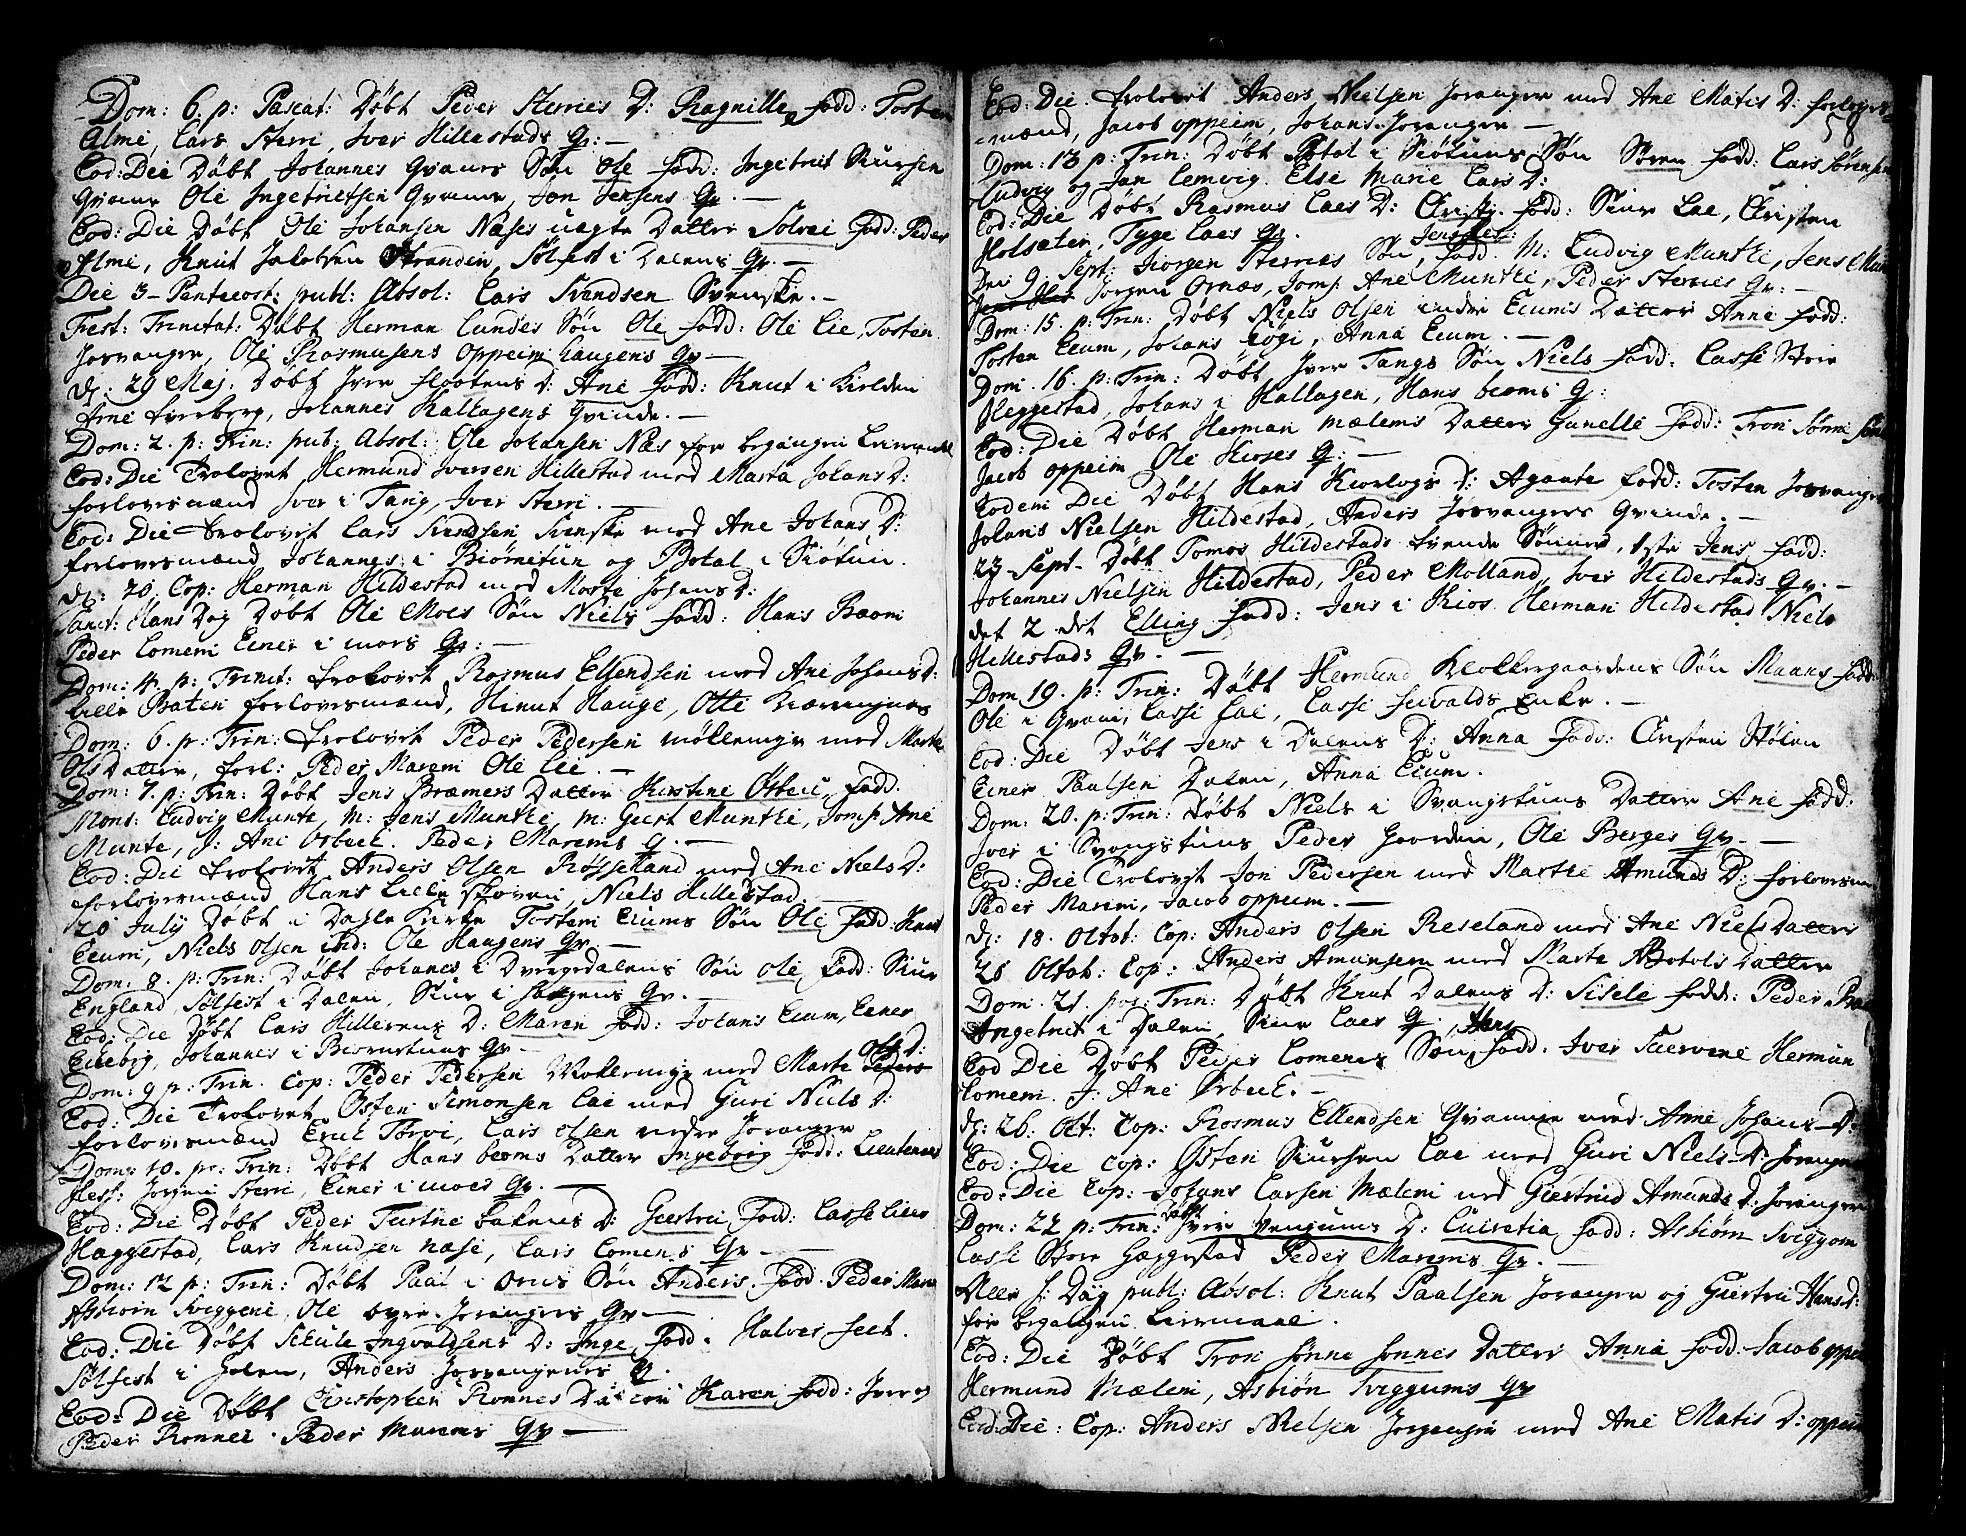 Dom: 6. p: Pascat: Døbt Peder Sterries D: Ragnille, fadd: Tosten
Alme, Lars Sterri, Iver Hillestads Qv: —
Eod: Die Døbt Johannes Qvames Søn Ole fadd: Ingebrit Siursen
Qvame Ole Ingebrietsen Qvamme, Jon Jensens Qv. —
Eod: Die Døbt Ole Johansen Næses uægte Datter Solvei fadd: Peder
Alme, Knut Jakobsen Stranden, Sølfest i Dalens Qv. —
Die 3 - Pentecost: publ: Absol: Lars Svendsen Svenske. —
Fest: Trinitat: Døbt Herman Lundes Søn Ole fadd: Ole Lie, Tosten
Jorvanger, Ole Rasmusens Oppeim haugens Qv —
d: 29 Maj: Døbt Iver Flootens D: Ane fadd: Knut i Kielden
Arne, Johannes Kallagens Qvinde. —
Dom: 2. p: Trin: pub: Absol: Ole Johansen Næs for begangen Leiermaal
Eod: Die Trolovet Hermund Iversen Hillestad med Marta Johans D:
forlovermænd Iver i Tang, Iver Sterri. —
Eod: Die trolovet Lars Svendsen Svenske med Ane Johans D:
forlovermænd Johannes i Biørnetun og Botal i Siøtun.
d: 20 Cop: Herman Hildestad med Marte Johans D:
Sanct: Hans Dag Døbt Ole Moes Søn Niels fadd: Hans Boom
Peder Lomem Ener i mors Qv: —
Dom: 4. p: Trinit: trolovet Rasmus Ellendsen med Ane Johans D:
Lille forlovermænd, Knut Hauge, Otte
Dom: 6. p: Trin: trolovet Peder Pedersen møllemyr med Marte
Ols Datter, forl: Peder Marem Ole Lie. —
Dom: 7. p: Trin: Døbt Jens Bræmers Datter Kirstine Otbeu, fadd.
Mons: Ludvig Munte, M: Jens Munthe, M: Gert Munthe, Jomf: Ane
Munte, J: Ane Orbeck. Peder Marems Q. —
Eod: Die trolovet Anders Olsen Røsseland med Ane Niels D:
forlovermænd Hans Lille skoven, Niels Hillestad —
20 July Døbt i Dahle Kirke Tosten Eeums Søn Ole fadd: Knut
Eeum, Niels Olsen ibid: Ole Haugens Qv —
Dom: 8. p: Trin: Døbt Johanes i Dvergedalens Søn Ole, fadd: Siur
England, Sølfest i Dalen, Siur i Haugens Qv. —
Eod: Die Døbt Lars Hillerens D: Maren fadd: Johans Eeum, Eener
Eikebig, Johannes i Biørnetuns Qv —
Dom: 9 p: Trin. Cop: Peder Pedersen Mollemyr med Marte Peders Ols D:
Eod: Die Trolovet Østen Simonsen Lae med Guri Niels D:
forlovermænd Erick Tørvi, Lars Olsen nedre Joranger
Dom: 10. p: Trin: Døbt Hans booms Datter Ingeborg fadd: Lieutenant
Hess: Jorgen Sterri, Einer i moes Qv. —
Eod: Die Døbt Peder Tertne bakens D: Giertrei fadd: Lasse Lille
Haggestad, Lars Knudsen Næse, Lars Lomens Qv —
Dom: 12 p: Trin: Døbt Paal i Ornis Søn Anders. fadd. Peder Marem
Asbiorn Sviggem, Ole øvre Jorangers Qv —
Eod: Die Døbt Sckule Ingvaldsens D: Inge, fadd. Halvor feet.
Sølfest i Jolen, Anders Jorvangers Q.
Eod: Die Døbt Christopher Ronnes Datter Karen fadd: Iver og
Peder Ronnei. Peder Marems Qv —
Eod: Die. trolovet Anders Nielsen Joranger med Ane Matis D: forlover-
mænd, Jacob oppeim, Johans Joranger —
58
Dom: 13 p: Trin: Døbt Botol i Siøtuns Søn Søren fadd: Lars Sørensen
Ludvig og Jan Lemvig. Else Marie Lars D:
Eod: Die Døbt Rasmus Laes D: Christi. fadd: Siur Lae, Christen
Holsæter, Tyge Laes Qv.
Den 9. Sept: Jorgen Sterries Søn, fadd. M: Ludvig Munthe, Jens Munthe
Jorgen Ornæs, Jomf: Ane Munthe, Peder Sterries Qv: —
Dom: 15. p: Trin: Døbt Niels Olsen indre Eeums Datter Anne fadd:
Tosten Eeum, Johans Høgi, Anna Eeum. —
Dom. 16. p: Trin: Døbt Iver Tangs Søn Niels fadd: Lasse Store
Heggestad, Johans i Hallagen, Hans booms Q:
Eod: Die Døbt Herman Mælems Datter Gunelle fadd: Tron Sønne
Jacob oppeim Ole Kioses Q: —
Eodem Die Døbt Hans Kiorlogs D: Agante fadd: Tosten Jorvanger
Johans Nielsen Hildestad, Anders Jorvangers Qvinde. —
23 - Sept - Døbt Tomas Hildestads tvende Sønner, 1ste Jens fadd:
Johannes Nielsen Hildestad, Peder Molland, Iver Hildestads Qv. —
det 2 det Elling fadd: Jens i Kios Herman Hildestad Niels
Hillestads Qv. —
Dom 19. p: Trin: Døbt Hermund Klokkergaardens Søn Maans fadd:
Ole i Qvam, Lasse Lae, Lasse Seivalds Enke. —
Eod: Die Døbt Jens i Dalens D: Anna fadd: Christen Hølen
Einer Paulsen Dalen, Anna Eeum.
Dom: 20. p: Trin: Døbt Niels i Svangstuns Datter Ane fadd:
Iver i Svangstuns Peder Gaarden, Ole Berges Qv. —
Eod: Die Trolovet Jon Pedersen med Marthe Amunds D: forloverm
Peder Marem, Jacob oppeim. —
d: 18. Octob: Cop: Anders Olsen Reseland med Ane Niels Datter
25 Octob: Cop: Anders Amunsen med Marte Botols Datter
Dom. 21. pos: Trin: Døbt Knut Dalens D: Sisele fadd: Peder
Ingebrit i Dalen, Siur Laes Q.
Eod Die Døbt Peder Lomens Søn Hans fadd. Iver Tuervene Hermun
Lomem. J: Ane Orbeck. —
d: 26. Oct: Cop: Rasmus Ellendsen Qvamme med Anne Johans D:
Eod: Die Cop: Østen Siursen Lae med Guri Niels D: Joranger
Eod: Die Cop: Johans Larsen Mælem med Giertrud Amunds d: Joranger
Dom: 22 p: Trin: Døbt Iver Venjums D: Lucretia fadd: Asbiørn Sviggom
Lasse Store Heggestad Peder Marems Qv. —
Alle H: Dag publ: Absol: Knut Paalsen Joranger og Giertru Hans D:
for begangen Leiermaal.
Eod: Die Døbt Tron Sønne Sønnes Datter Anna fadd. Jacob oppeim
Hermund Mælem, Asbiøn Sviggums Qv
Eod: Die: Cop: Anders Nielsen Jorgensen med Ane Matis D: oppeim